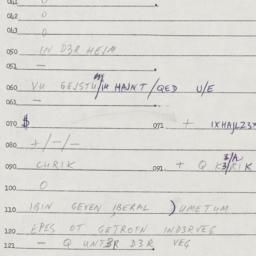 041.
042. 0
043. 0
050. IN D3R HEIM
051. —
060. VU GEJSTU/IR HAJNT/QED U/E
061. —
070. $ 071. + 1XHAJLZ3X
080. +/—/—
090. CURIK 091. + Q K3/RIK
100. 0
110. IBIN GEVEN IBERAL) UMETUM
120. EPES OT GETROFN IND3RVEG
121. — Q UNT3R D3R VEG